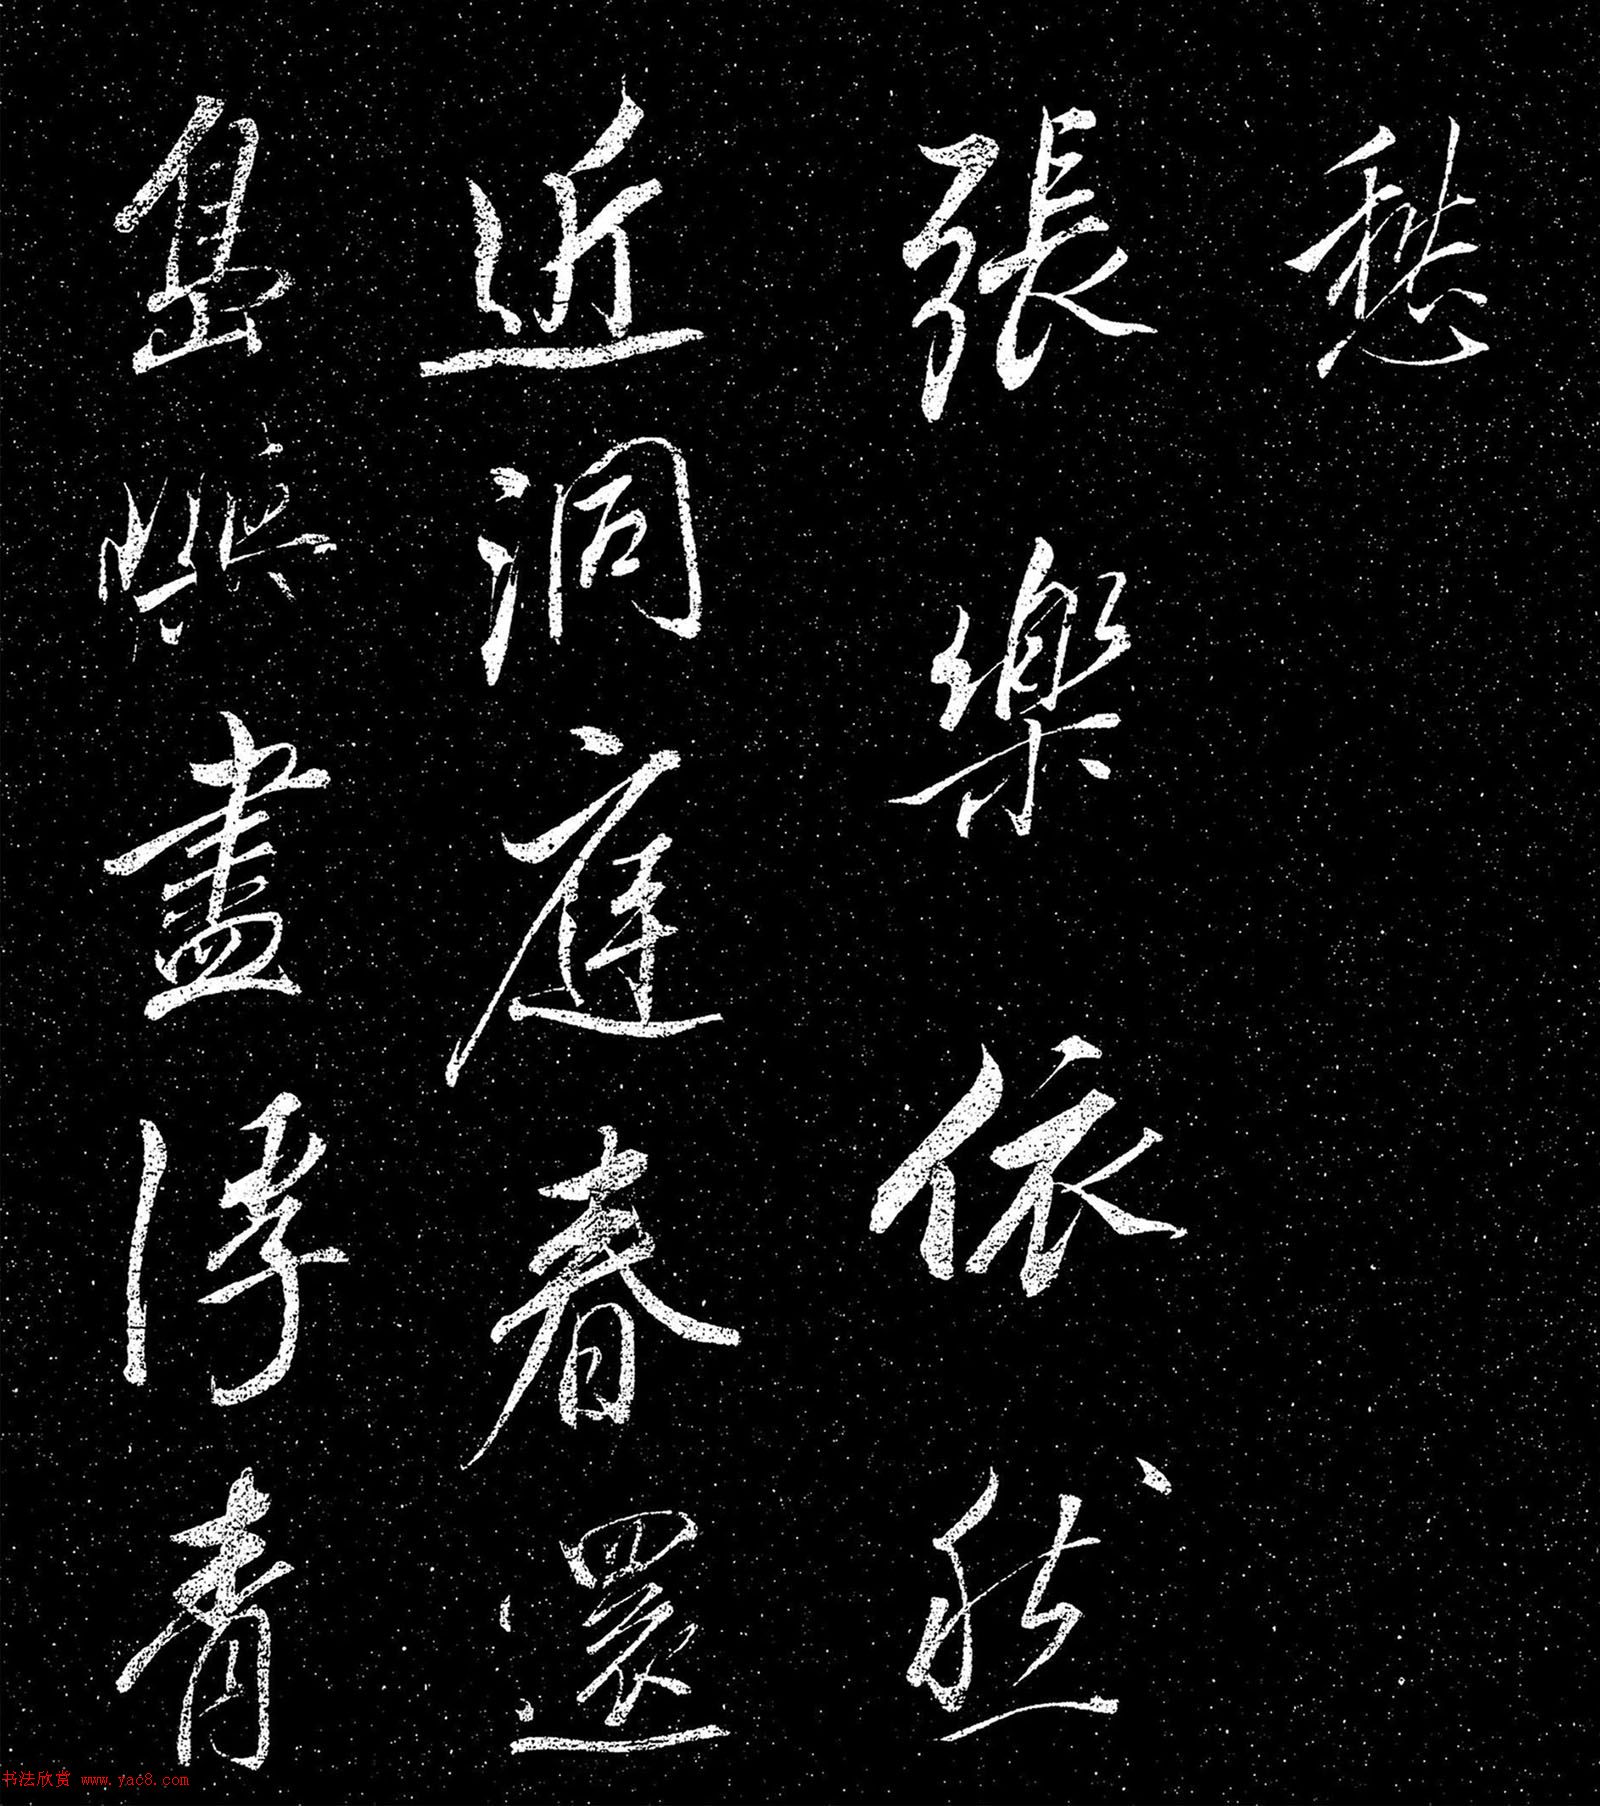 愁
張樂依然
近洞庭春還
島嶼盡浮青
书法欣赏 www.yac8.com